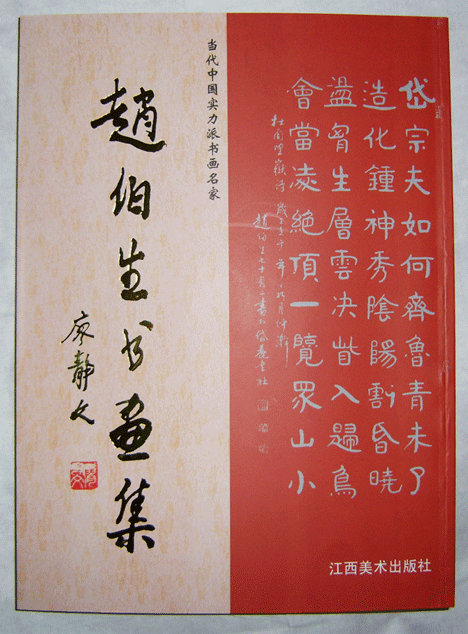 当代中国实力派书画名家
趙伯生书画集
廖静文
岱宗夫如何齊魯青未了
造化鍾神秀陰陽割昏曉
盪胷生層雲决眥入歸鳥
會當凌絶頂一覽眾山小
杜甫望嶽诗
趙伯生
江西美术出版社